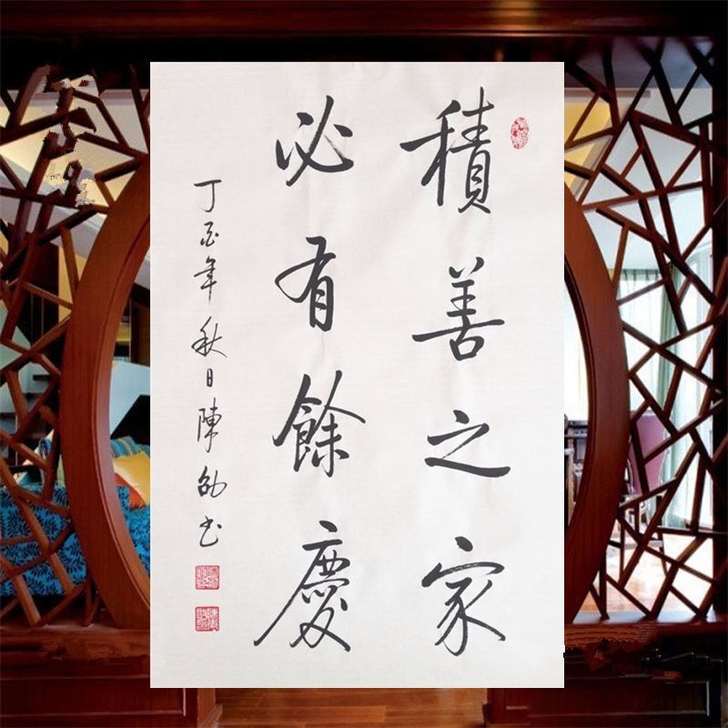 積善之家
必有餘慶
丁酉年秋日陳劭书